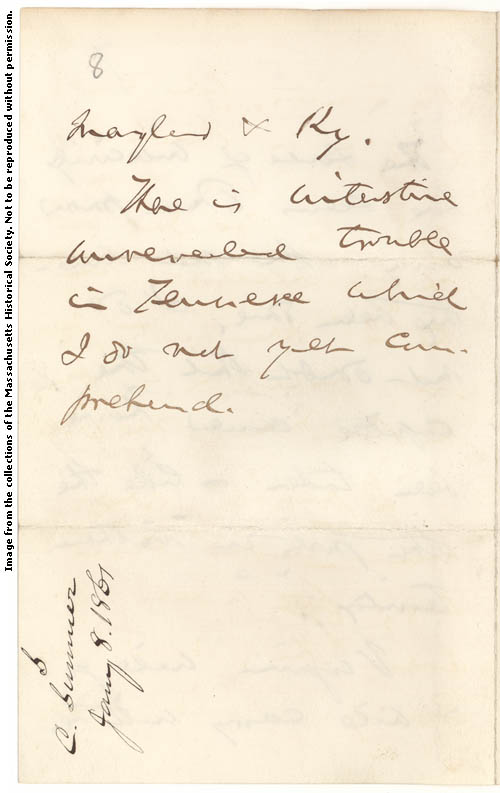 Image from the collections of the Massachusetts Historical Society. Not to be reproduced without permission.
8
Maryland & Ky.
There is intestine
unrevealed trouble
in Tennessee which
I do not yet com-
prehend.
C. Sumner
Jany 8. 1861